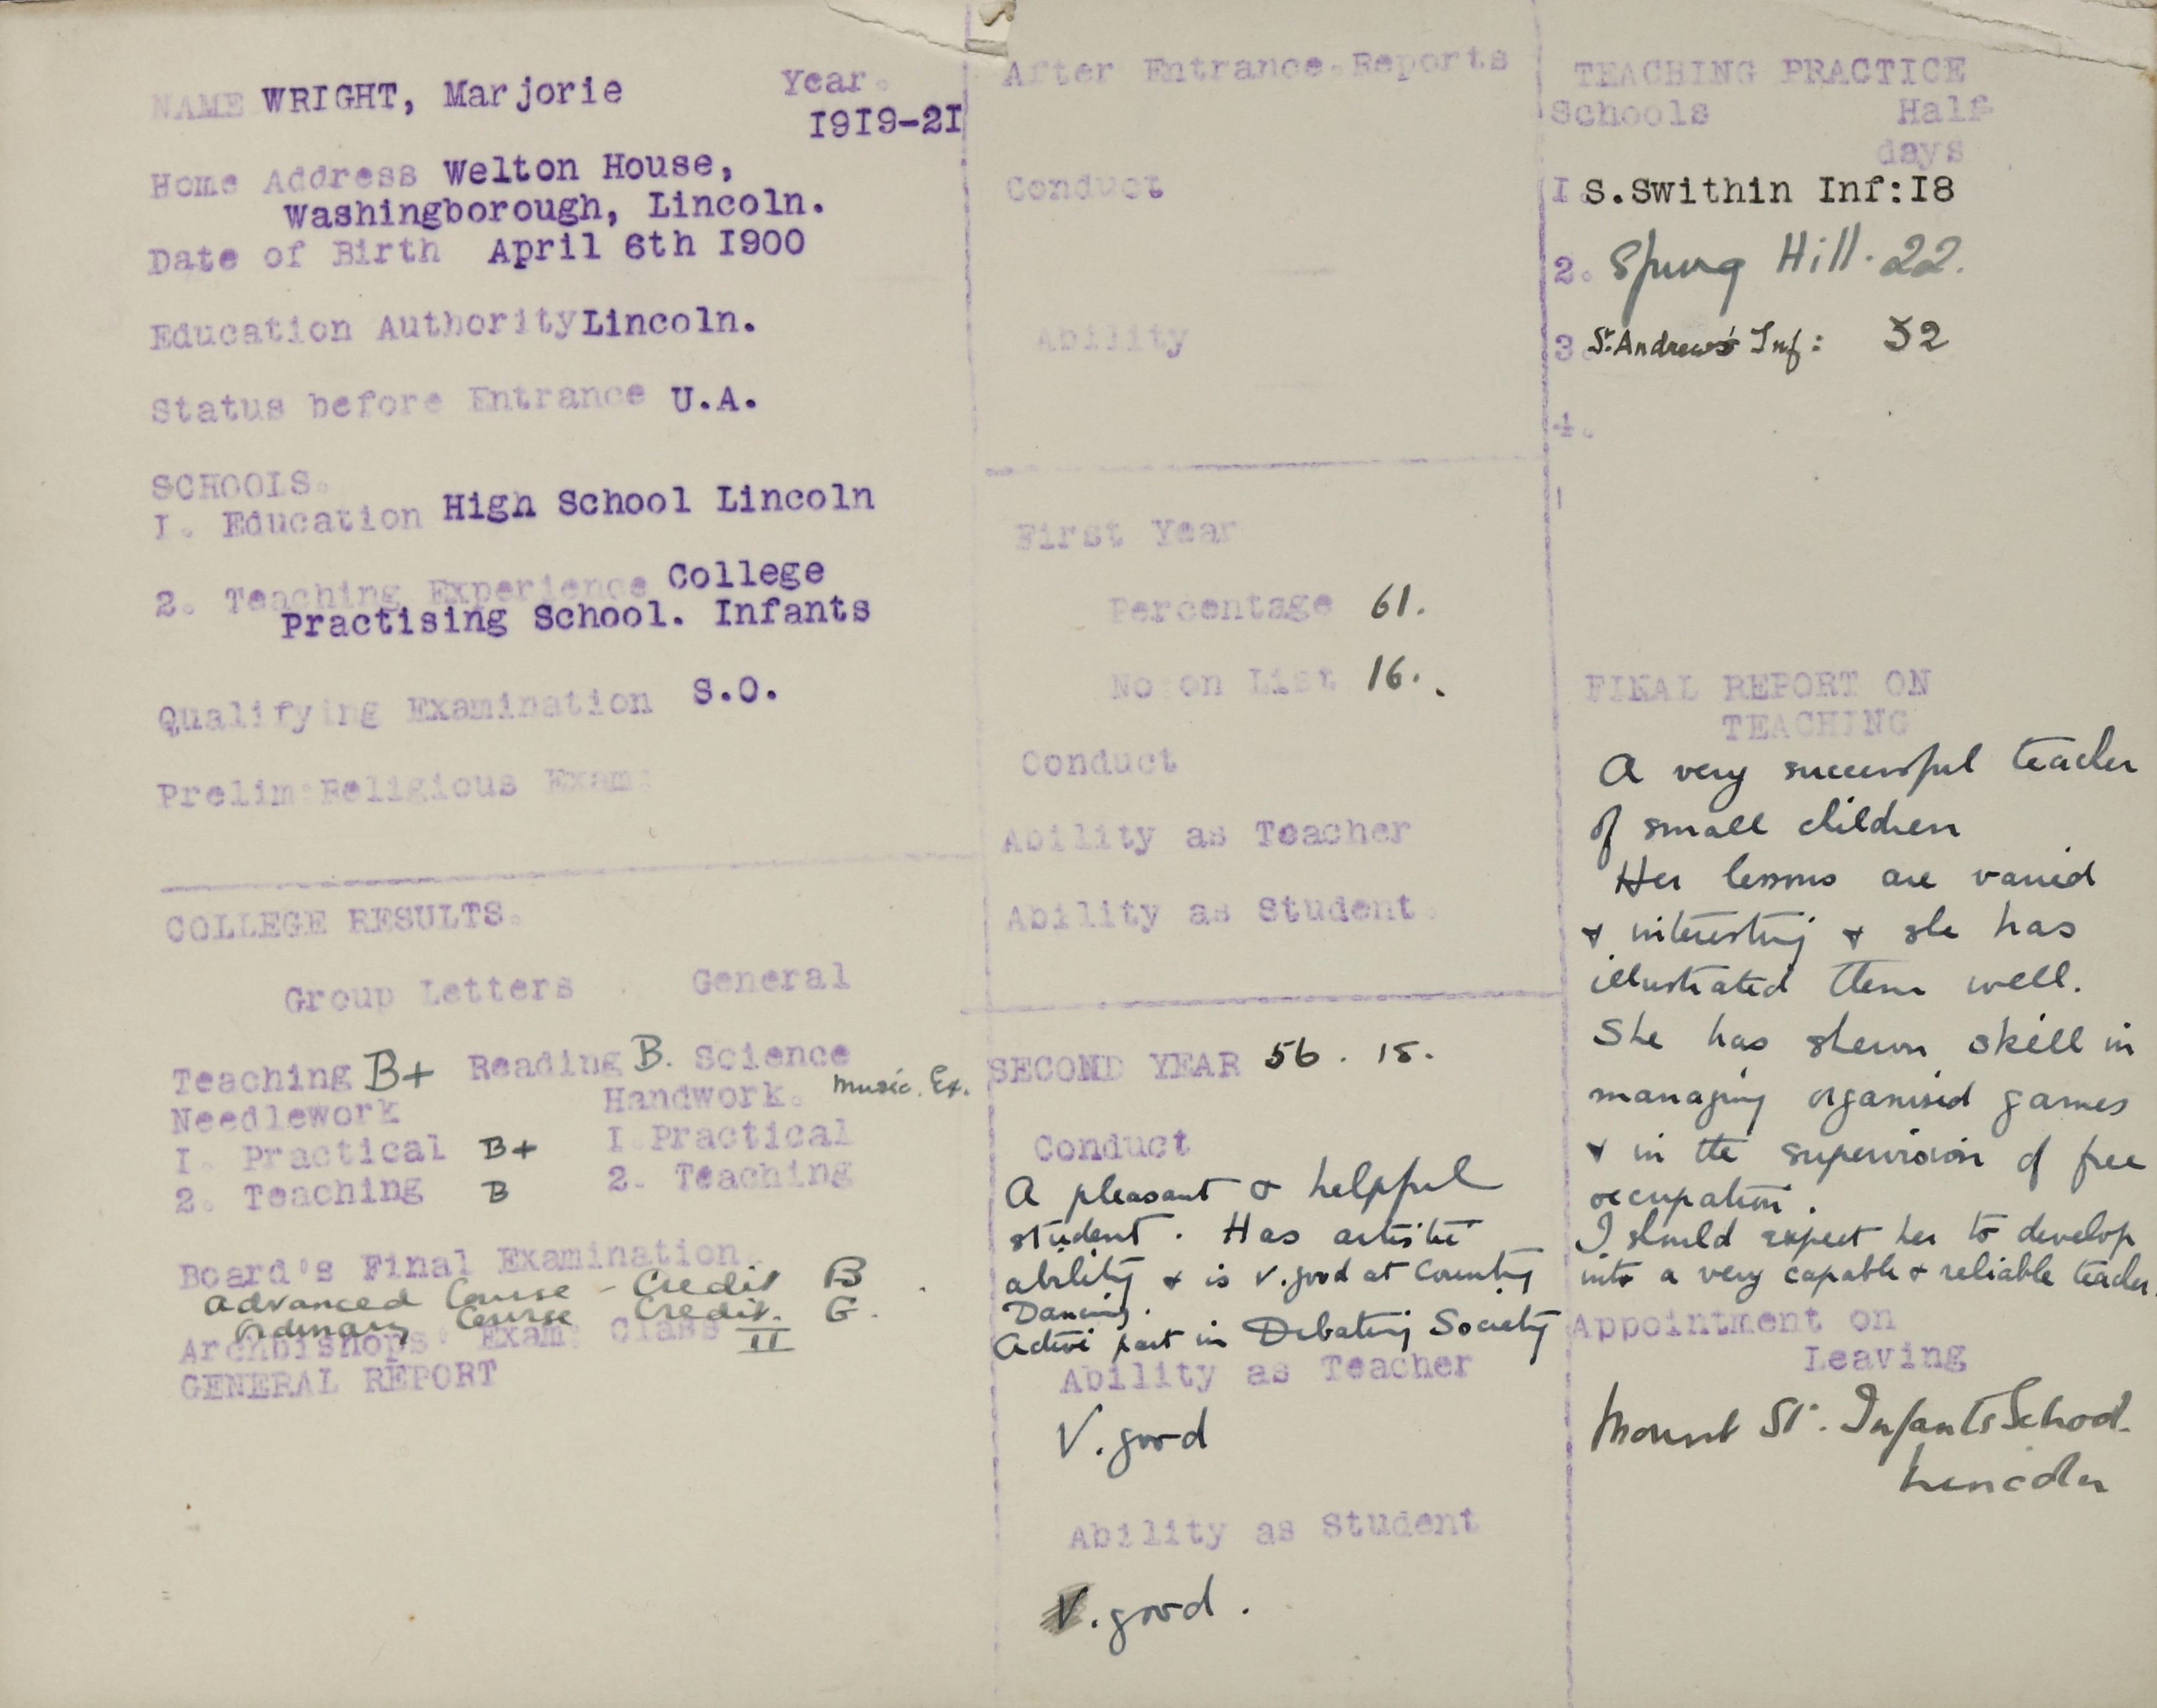 NAME WRIGHT, Marjorie Year.
I9I9-2I
Home Address Welton House,
Washingborough, Lincoln.
Date of Birth April 6th I900
Education Authority Lincoln.
Status before Entrance U.A.
SCHOOLS.
I. Education High School Lincoln
2. Teaching Experience College
Practising School. Infants
Qualifying Examination S.O.
Prelim:Religious Exam:
COLLEGE RESULTS.
Group Letters General
Teaching B+ Reading B. Science
Needlework Handwork. Music. Ex.
I. Practical B+ I.Practical
2. Teaching B 2. Teaching
Board's Final Examination.
Advanced Course - Credit B
Ordinary Course Credit. G.
Archbishops' Exam: Class II
GENERAL REPORT
After Entrance.Reports
Conduct
Ability
First Year
Percentage 61.
No on List 16.
Conduct
Ability as Teacher
Ability as Student.
SECOND YEAR 56. 15.
Conduct
A pleasant & helpful
student. Has artistic
ability & is v. good at Country
Dancing.
Active part in Debating Society
Ability as Teacher
V. good
Ability as Student
V. good.
TEACHING PRACTICE
Schools Half
days
I.S.Swithin Inf:I8
2. Spring Hill. 22.
3. St. Andrew's Inf: 32
4.
FINAL REPORT ON
TEACHING
A very successful teacher
of small children
Her lessons are varied
& interesting & she has
illustrated them well.
She has shewn skill in
managing organised games
& in the supervision of free
occupation.
I should expect her to develop
into a very capable & reliable teacher.
Appointment on
Leaving
Mount St. Infants School.
Lincoln